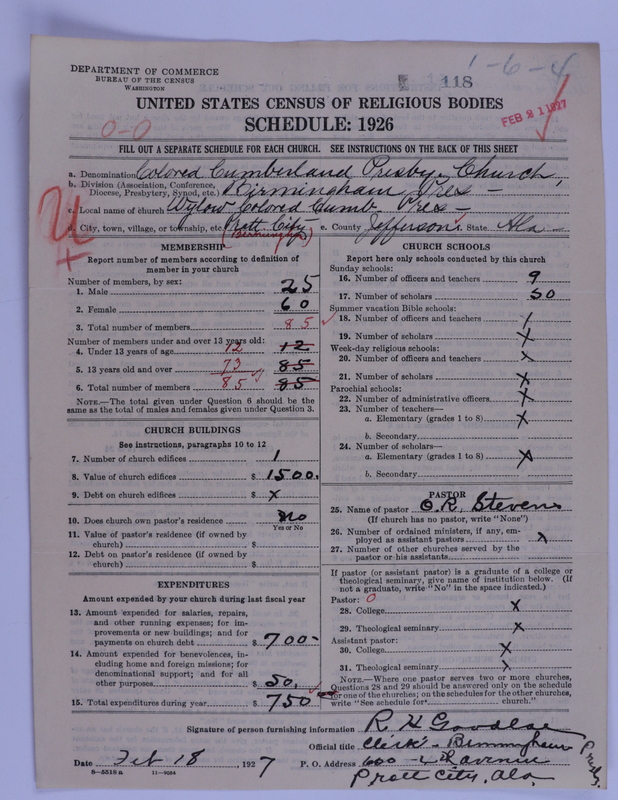 1-6-4
DEPARTMENT OF COMMERCE
BUREAU OF THE CENSUS
WASHINGTON
118
UNITED STATES CENSUS OF RELIGIOUS BODIES
FEB 21 1927
SCHEDULE: 1926
0-0
FILL OUT A SEPARATE SCHEDULE FOR EACH CHURCH. SEE INSTRUCTIONS ON THE BACK OF THIS SHEET
a. Denomination Colored Cumberland Presby. Church,
b. Division (Association, Conference, Diocese, Presbytery, Synod, etc.) Birmingham Pres –
c. Local name of church Wylow Colored Cumb. Pres –
d. City, town, village, or township, etc. Pratt City e. County Jefferson. State Ala –
MEMBERSHIP
Report number of members according to definition of
member in your church
Number of members, by sex:
1. Male 25
2. Female 60
3. Total number of members 85
Number of members under and over 13 years old:
4. Under 13 years of age 12 12
5. 13 years old and over 73 85
6. Total number of members 85 85
NOTE.—The total given under Question 6 should be the
same as the total of males and females given under Question 3.
CHURCH BUILDINGS
See instructions, paragraphs 10 to 12
7. Number of church edifices 1
8. Value of church edifices $ 1500.
9. Debt on church edifices $ x
10. Does church own pastor's residence No
Yes or No
11. Value of pastor's residence (if owned by
church) $
12. Debt on pastor's residence (if owned by
church) $
EXPENDITURES
Amount expended by your church during last fiscal year
13. Amount expended for salaries, repairs,
and other running expenses; for im-
provements or new buildings; and for
payments on church debt $ 700-
14. Amount expended for benevolences, in-
cluding home and foreign missions; for
denominational support; and for all
other purposes $ 50.
15. Total expenditures during year $ 750
CHURCH SCHOOLS
Report here only schools conducted by this church
Sunday schools:
16. Number of officers and teachers 9
17. Number of scholars 50
Summer vacation Bible schools:
18. Number of officers and teachers
19. Number of scholars x
Week-day religious schools:
20. Number of officers and teachers x
21. Number of scholars x
Parochial schools:
22. Number of administrative officers x
23. Number of teachers—
a. Elementary (grades 1 to 8) x
b. Secondary
24. Number of scholars—
a. Elementary (grades 1 to 8) x
b. Secondary
PASTOR
25. Name of pastor O. R. Stevens
(If church has no pastor, write "None")
26. Number of ordained ministers, if any, em-
ployed as assistant pastors x
27. Number of other churches served by the
pastor or his assistants
If pastor (or assistant pastor) is a graduate of a college or
theological seminary, give name of institution below. (If
not a graduate, write "No" in the space indicated.)
Pastor: 0
28. College x
29. Theological seminary x
Assistant pastor:
30. College x
31. Theological seminary x
NOTE.—Where one pastor serves two or more churches,
Questions 28 and 29 should be answered only on the schedule
for one of the churches; on the schedules for the other churches,
write "See schedule for church."
Signature of person furnishing information R. H. Goodloe
Official title Clerk - Birmingham Presby.
Date Feb 18, 1927 P. O. Address 600 - 4th avenue
8-5518 a 11-9064 Pratt City, Ala.